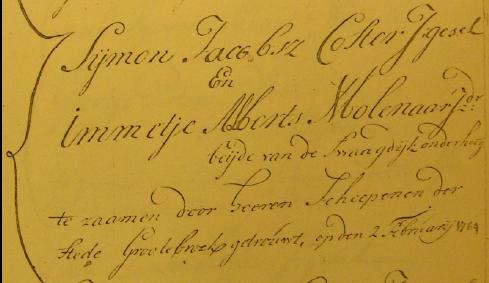 Sijmon Jacobsz Coster Jgesel
En
Immetje Alberts Molenaar Jdr:
beijde van de Swaagdijk onder hoog
te zaamen door heeren Scheepenen der
stede Grootebroek getrouwt, op den 2 Februarij 1764